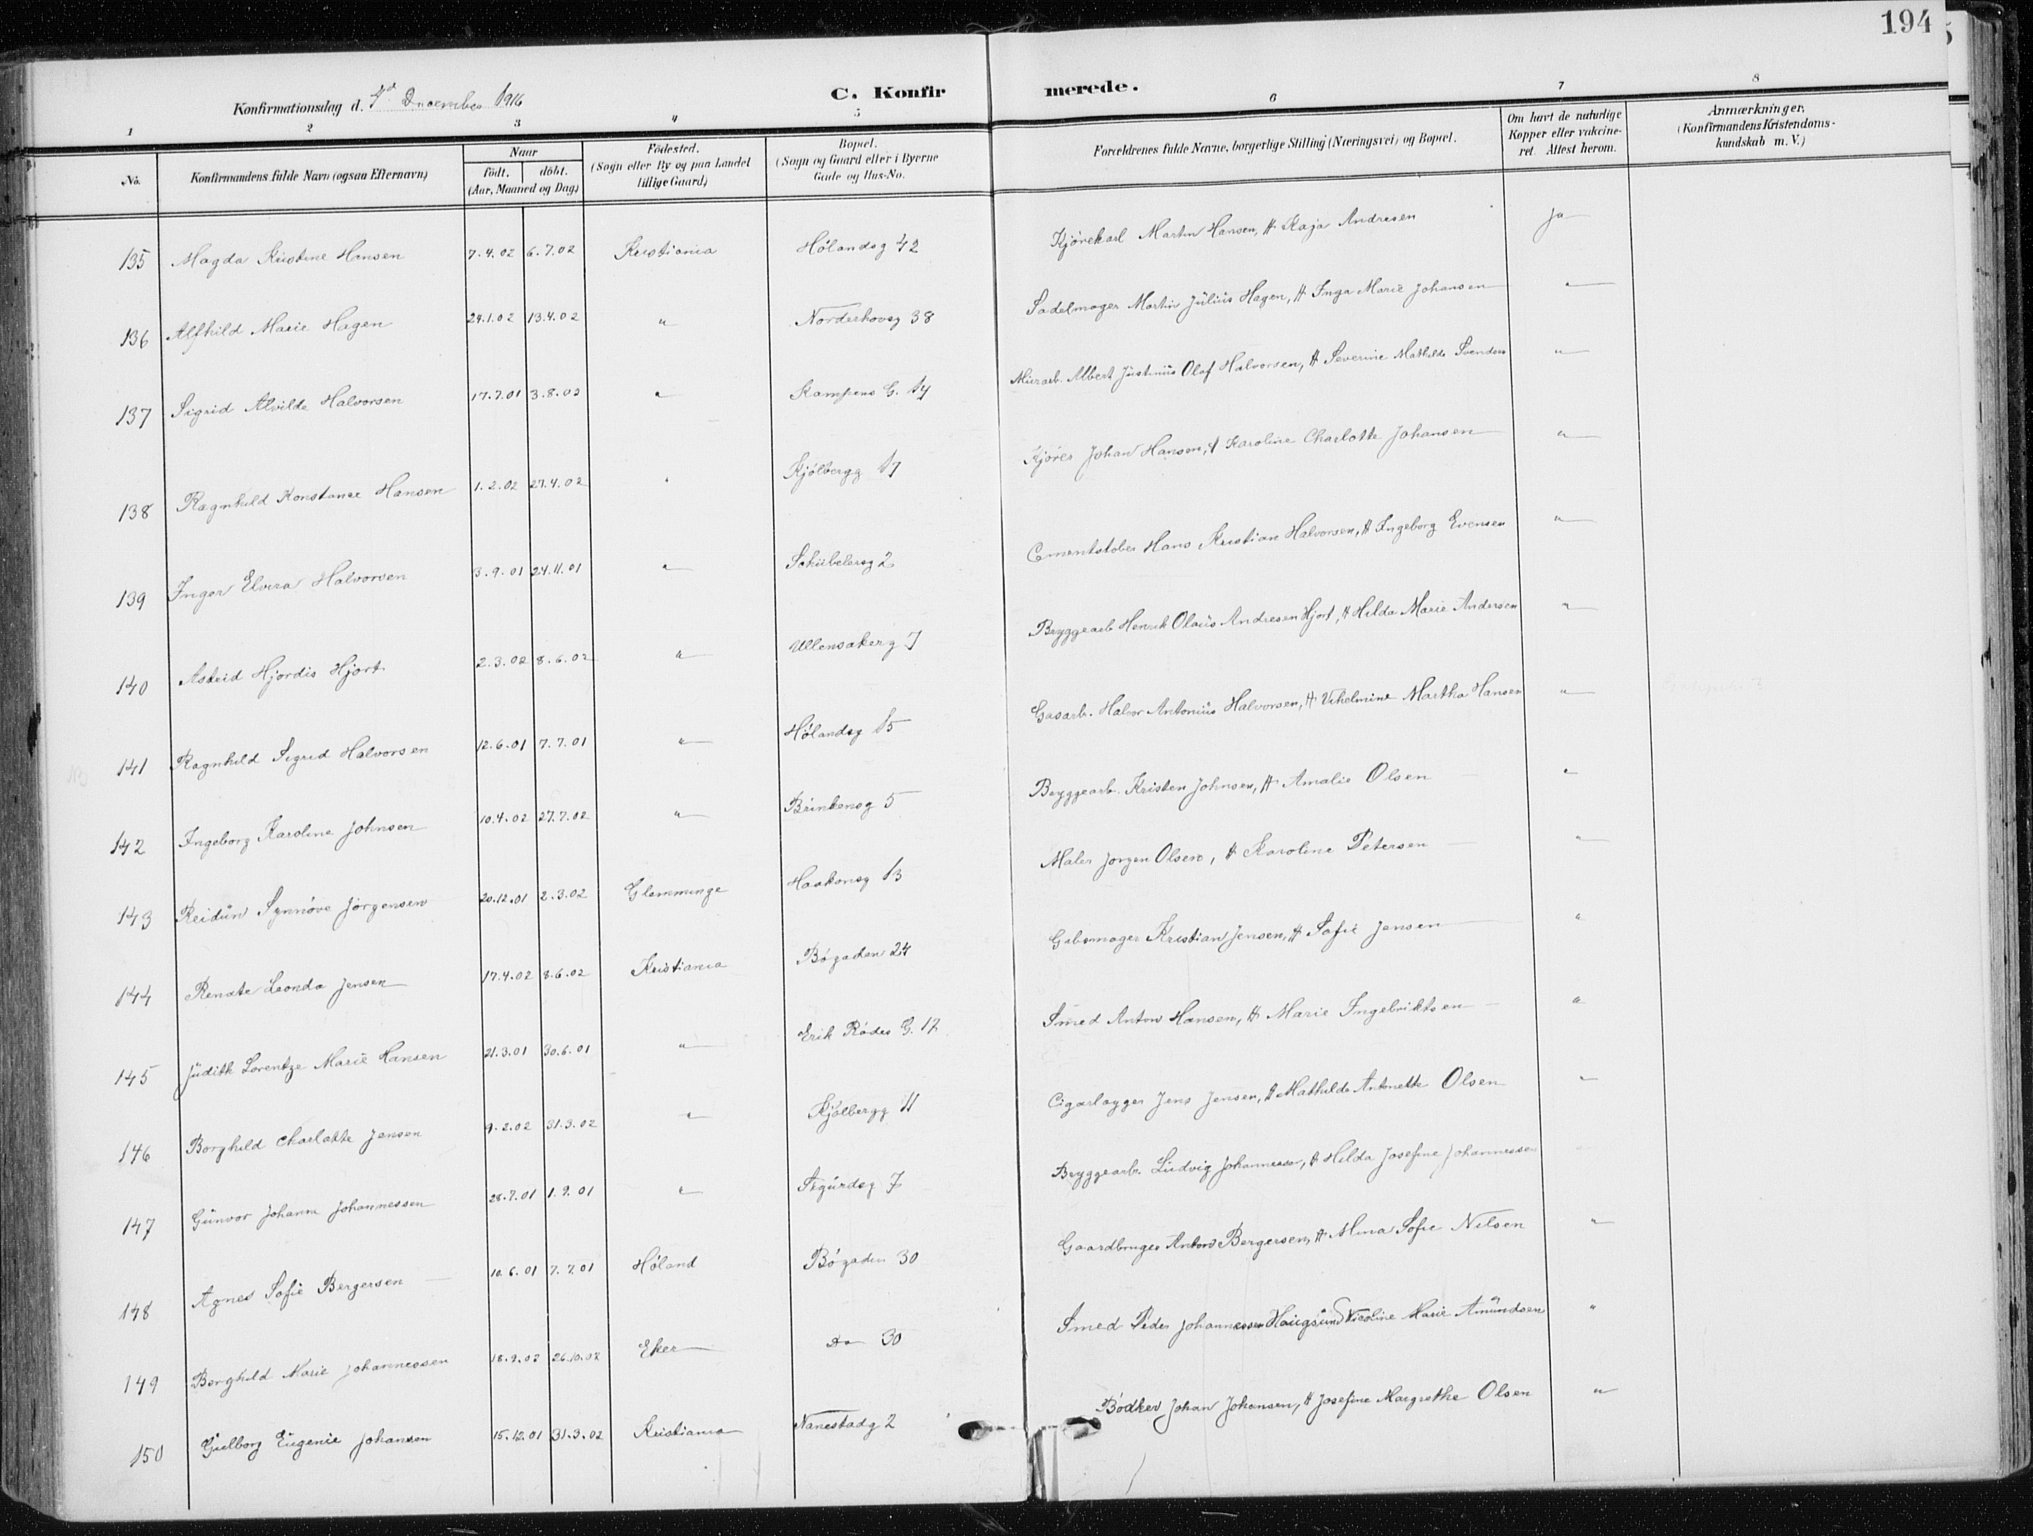 194
Konfirmationsdag d. 1ste December 1916
C. Konfirmerede.
1 2 3 4 5 6 7 8
No. Konfirmandens fulde Navn (ogsaa Efternavn) Naar født. døbt. (Aar, Maaned og Dag) Fødested. (Sogn eller By og paa Landet tillige Gaard) Bopæl. (Sogn og Gaard eller i Byerne Gade og Hus-No. Forældrenes fulde Navne, borgerlige Stilling (Næringsvei) og Bopæl. Om havt de naturlige Kopper eller vakcineret. Attest herom. Anmærkninger. (Konfirmandens Kristendomskundskab m.V.)
135 Magda Kristine Hansen 7.4.02 6.7.02 Kristiania Hølandsg 42 Kjørekarl Martin Hansen, # Kaja Andresen ja
136 Alfhild Marie Hagen 24.1.02 13.4.02 " Norderhovsg 38 Sadelmager Martin Julius Hagen, # Inga Marie Johansen "
137 Sigrid Alvilde Halvorsen 17.7.01 3.8.02 " Kampens G. 14 Murarb. Albert Justinius Olaf Halvorsen, # Severine Mathilde Svendsen "
138 Ragnhild Konstanse Hansen 1.2.02 27.4.02 " Kjølbergg 17 Kjører Johan Hansen, # Karoline Charlotte Johansen "
139 Inger Elvira Halvorsen 3.9.01 24.11.01 " Schübelersg 2 Cementstøber Hans Kristian Halvorsen, # Ingeborg Evensen "
140 Astrid Hjordis Hjort 2.3.02 8.6.02 " Ullensakerg 7 Bryggearb Henrik Olaus Andresen Hjort, # Hilda Marie Andersen "
141 Ragnhild Sigrid Halvorsen 12.6.01 7.7.01 " Hølandsg 15 Gasarb. Halvor Antonius Halvorsen, # Vilhelmine Martha Hansen "
142 Ingeborg Karoline Johnsen 10.4.02 27.7.02 " Brinkensg 5 Bryggearb. Kristen Johnsen, # Amalie Olsen "
143 Reidun Synnøve Jørgensen 20.12.01 2.3.02 Glemminge Haakonsg 13 Maler Jørgen Olsen, # Karoline Petersen "
144 Renate Leonda Jensen 17.4.02 8.6.02 Kristiania Bøgaden 24 Gibsmager Kristian Jensen, # Sofie Jensen "
145 Judith Lorentze Marie Hansen 21.3.01 30.6.01 " Erik Rødes G. 12 Smed Anton Hansen, # Marie Ingebriktsen "
146 Borghild Charlotte Jensen 9.2.02 31.3.02 " Kjølbergg 11 Cigarlægger Jens Jensen, # Mathilde Antonette Olsen "
147 Gunvor Johanne Johannessen 28.7.01 1.9.01 " Sigurdsg 7 Bryggearb. Ludvig Johannessen, # Hilda Josefine Johannessen
148 Agnes Sofie Bergersen 10.6.01 7.7.01 Høland Bøgaden 30 Gaardbruger Anton Bergersen, # Mina Sofie Nilsen "
149 Borghild Marie Johannessen 18.9.02 26.10.02 Eker Do 30 Smed Peder Johannessen Haugsund, Nicoline Marie Amundsen "
150 Gulborg Eugenie Johansen 15.12.01 31.3.02 Kristiania Nanestadg 2 Bødker Johan Johansen, # Josefine Margrethe Olsen "